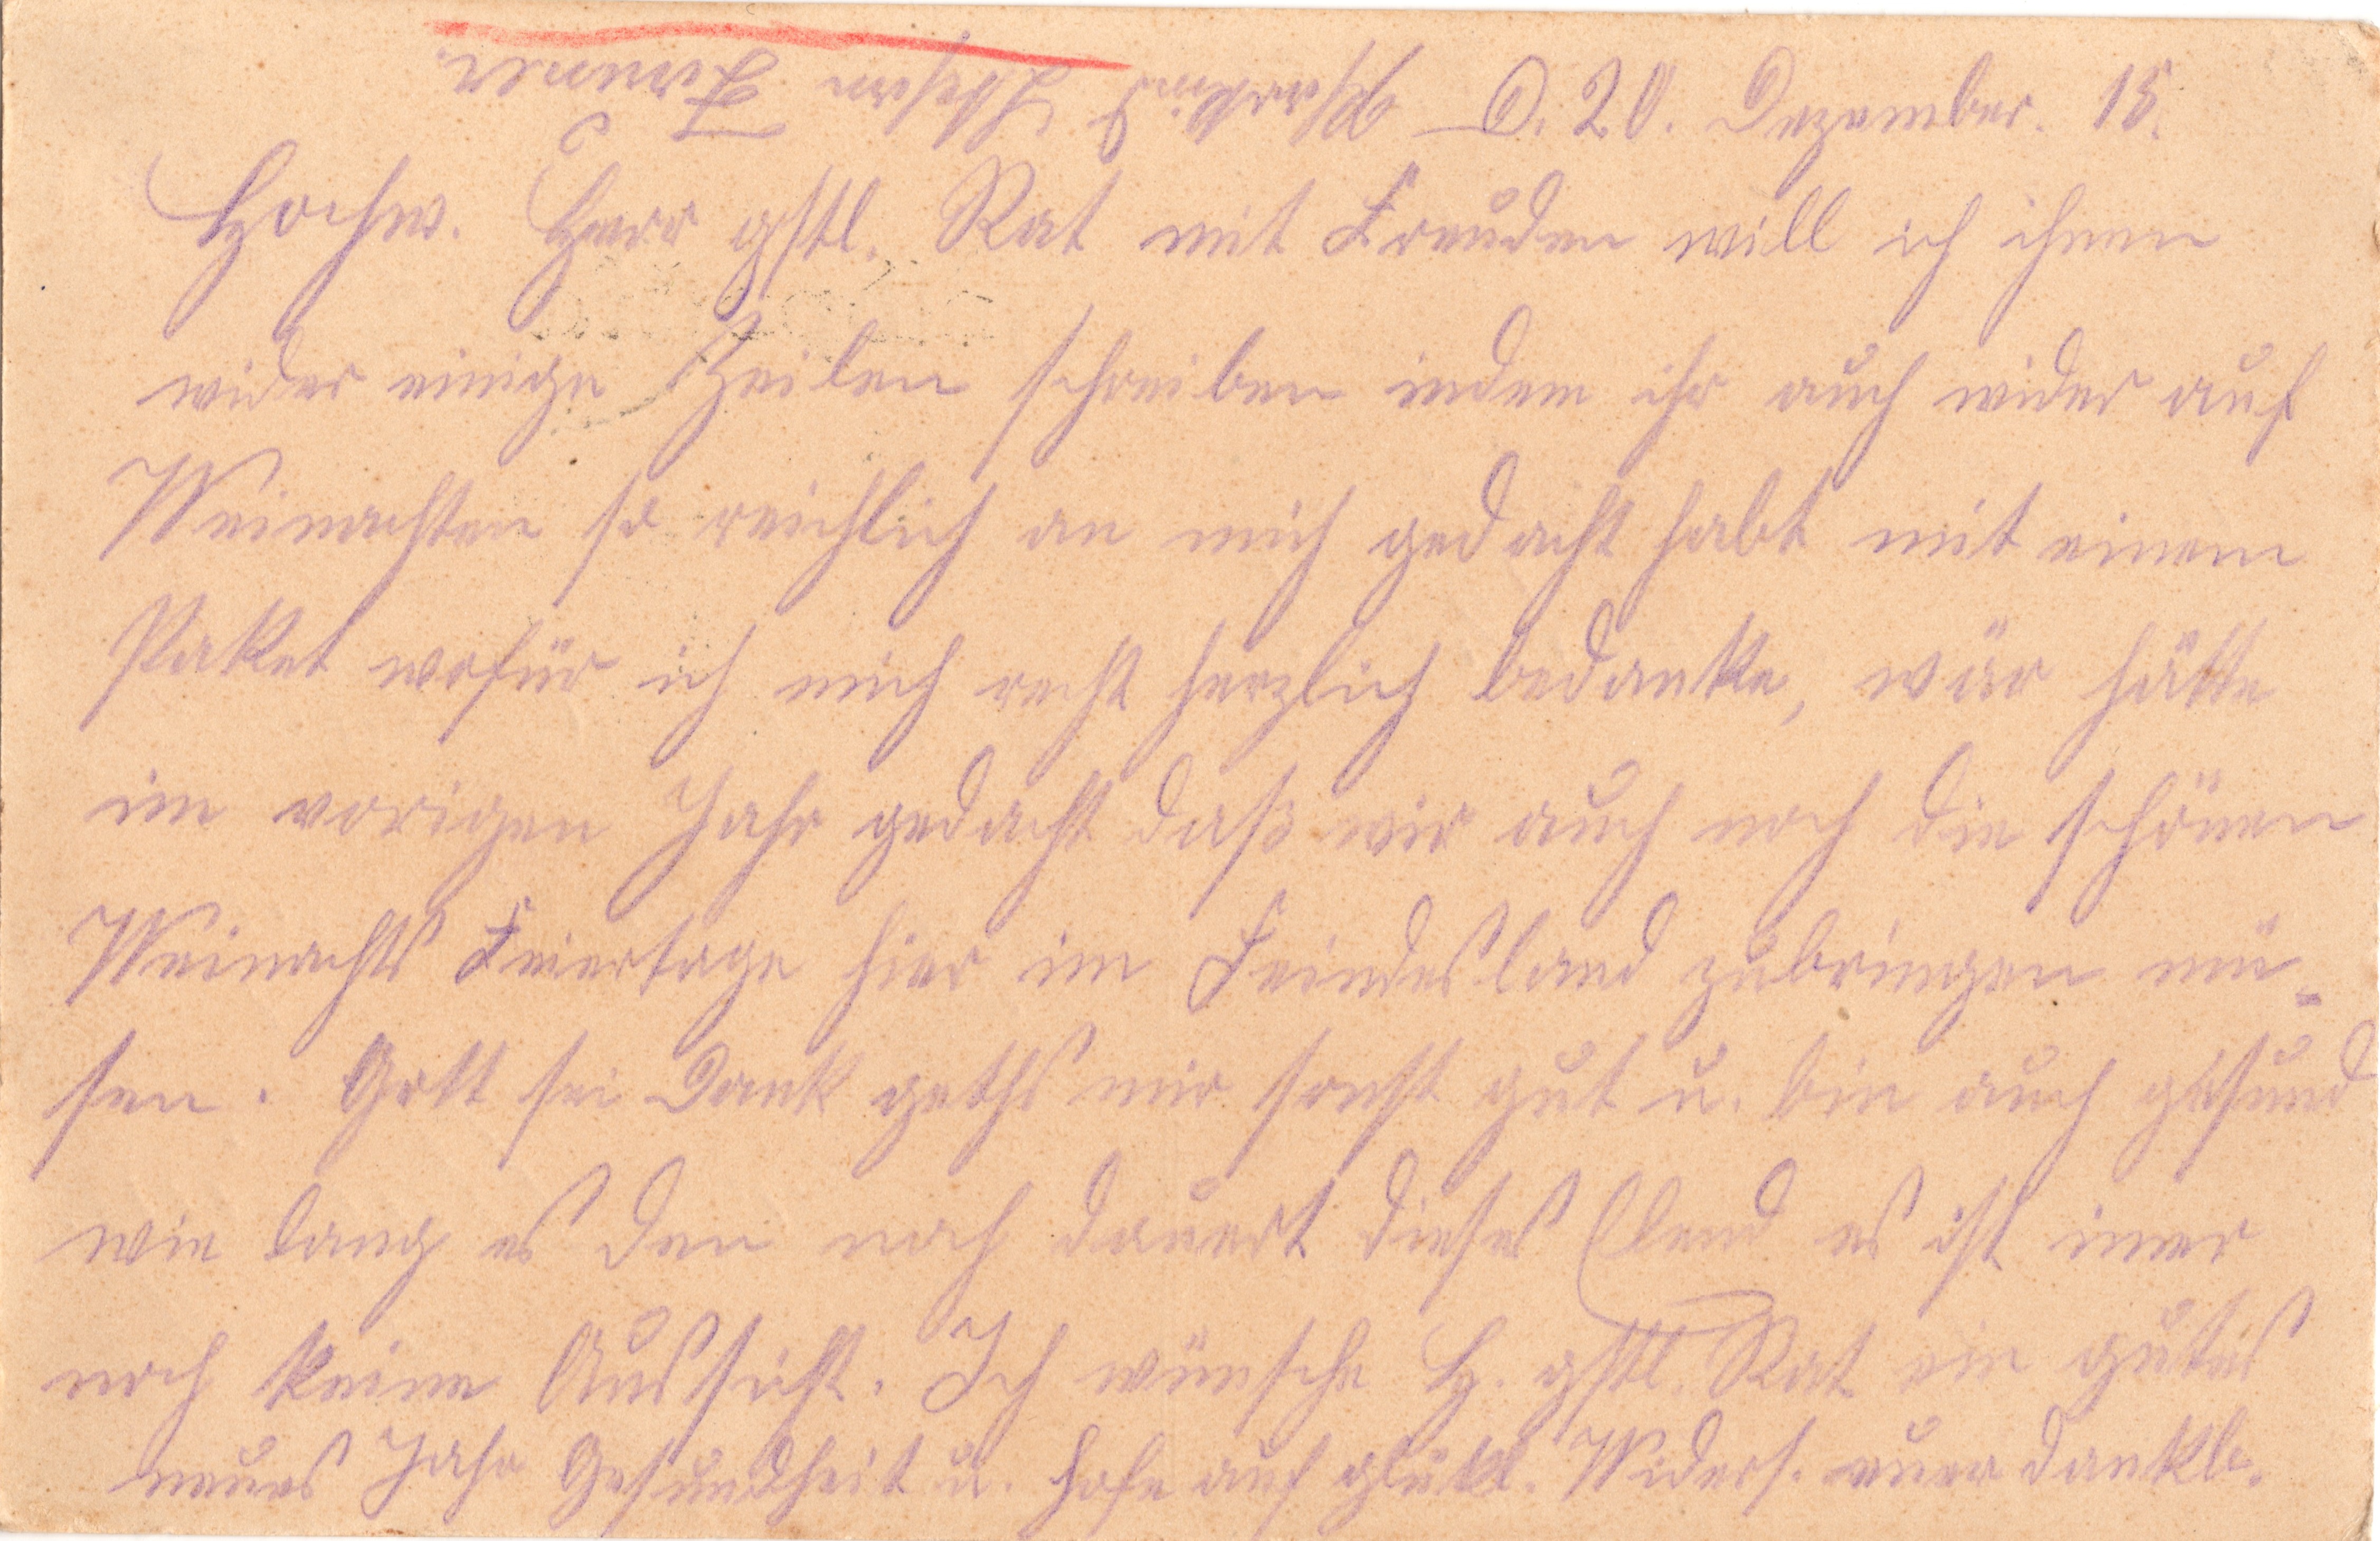 O. 20. Dezember. 15.
Hochw. Herr gstl. Rat mit Freuden will ich ihnen
wider einige Zeilen schreiben indem ihr auch wider auf
Weinachten so reichlich an mich gedacht habt mit einem
Paket wofür ich mich recht herzlich bedanke, wär hätte
im vorigen Jahr gedacht daß wir auch noch die schönen
Weinachts Feiertage hier im Feindesland zubringen mü-
sen. Gott sei Dank geths mir sonst gut u. bin auch gesund
wie lang es den noch dauert dieses Elend es ist imer
noch keine Aussicht. Ich wünsche H. gstl. Rat ein gutes
neues Jahr Gesundheit u. hofe auf glükl. Widers. euer dankb.